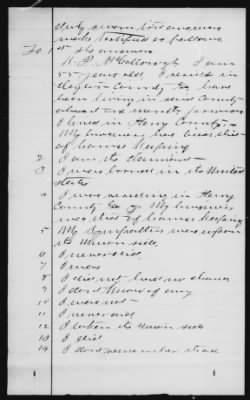 duly sworn
makes testified as follows
To 1st He answers
McCollorugh I am
55 years old I reside in
Clayton County Ga have
been living in said County
about
I lived in Henry County
My business has been that
of house keeping
2 I am the claimant
3 I was born in the United
States
4 I was residing in Henry
County Ga My business
was that of house keeping
5 My sympathies was upon
the Union side
6 I never did
7 I was
8 I did not had no chance
9 I don't know of any
10 I was not
11 I never did
12 I taken the Union side
13 I did
14 I dont remember